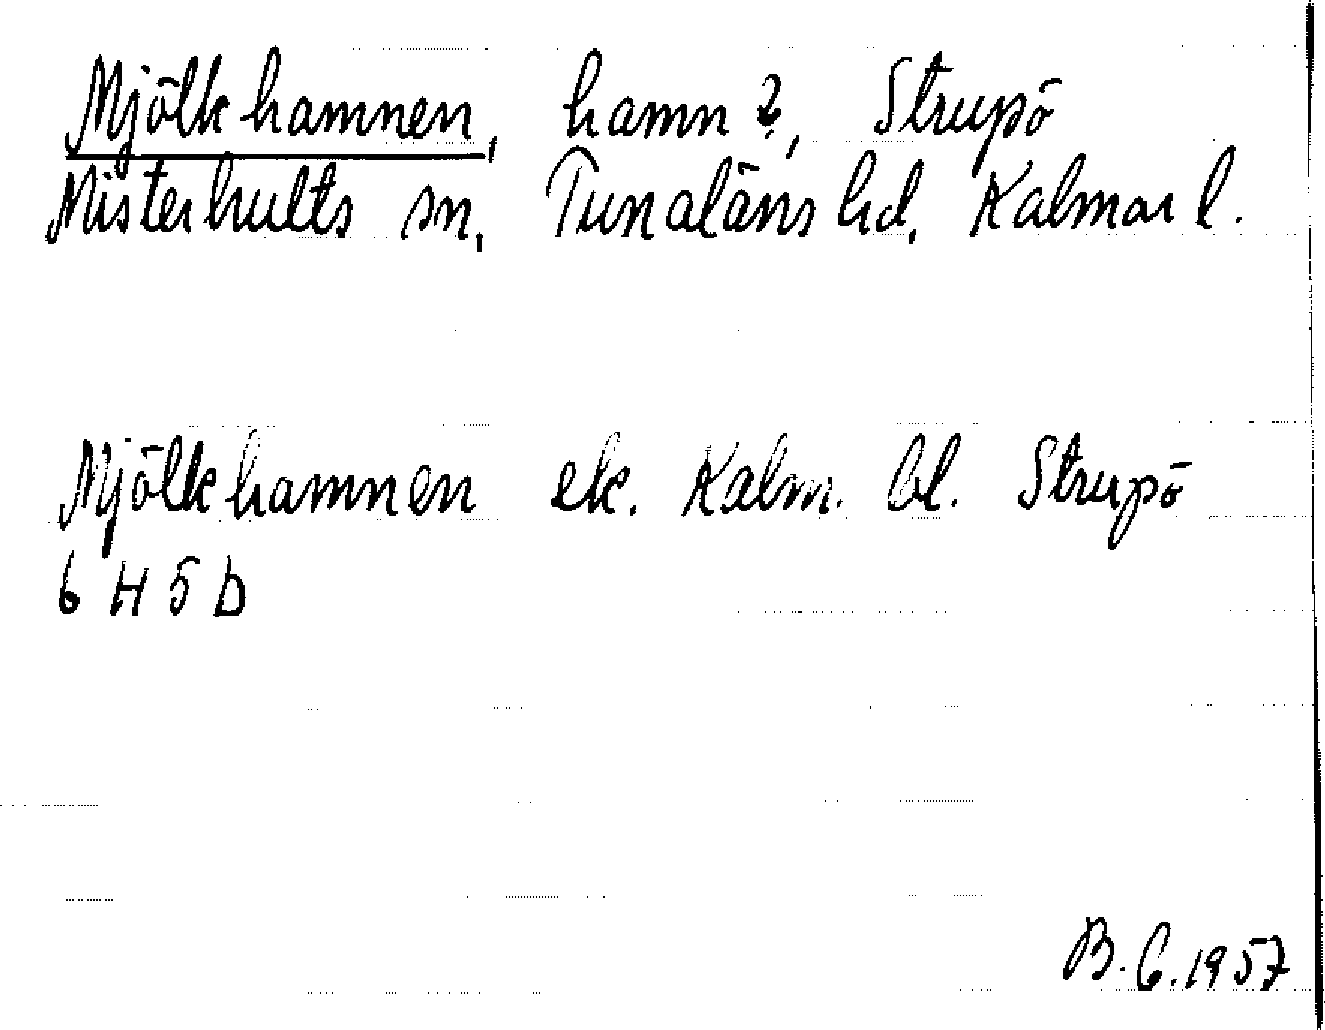 Mjölkhamnen, hamn?, Strupö
Misterhults sn, Tunaläns hd, Kalmar l.
Mjölkhamnen ek. Kalm. bl. Strupö
6 H 5 b
B.G.1957